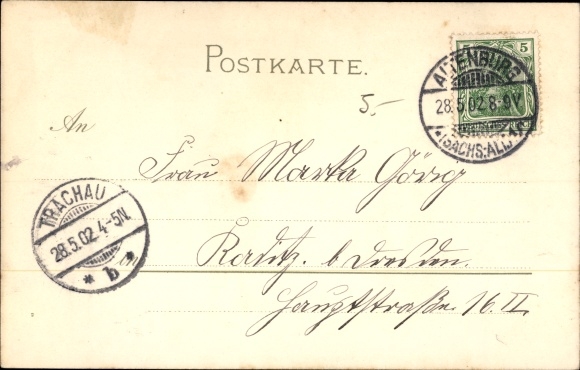 POSTKARTE.
5 5
ALTENBURG
28.5.02.8-9V.
* (SACHS.-ALT.) 1
5.-
An
Frau Marta Görg
TRACHAU
28.5.02.4-5N.
* b *
Kaditz b Dresden.
Hauptstraße 16. II.